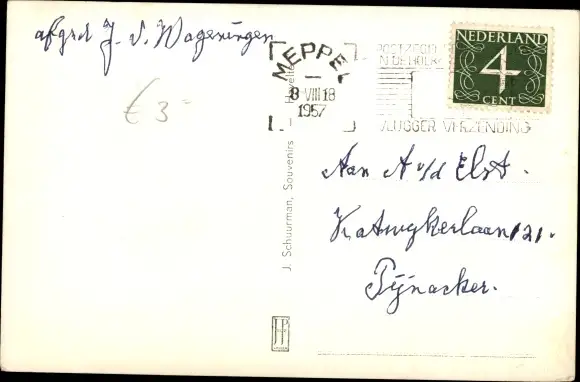 J. v. Wageningen
€ 3 -
MEPPEL
8 VIII 18
1957
VLUGGER VERZENDING
NEDERLAND
4
CENT
J. Schuurman, Souvenirs —
Aan A v/d Elst.
Katwykerlaan 121.
Pijnacker.